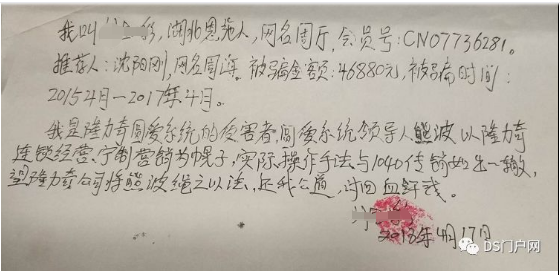 我叫 彩，湖北恩施人，网名周厅，会员号：CN07736281。
推荐人：沈阳刚，网名周海。被骗金额：46880元，被骗时间：
2015 4月—2017年4月。
我是隆力奇圆爱系统的受害者，圆爱系统领导人熊波以隆力奇
连锁经营、宁制营销为幌子，实际操作手法与1040传销如出一辙，
望隆力奇公司将熊波绳之以法，还我公道，讨回血钎钱。
2018年4月17日
DS门户网